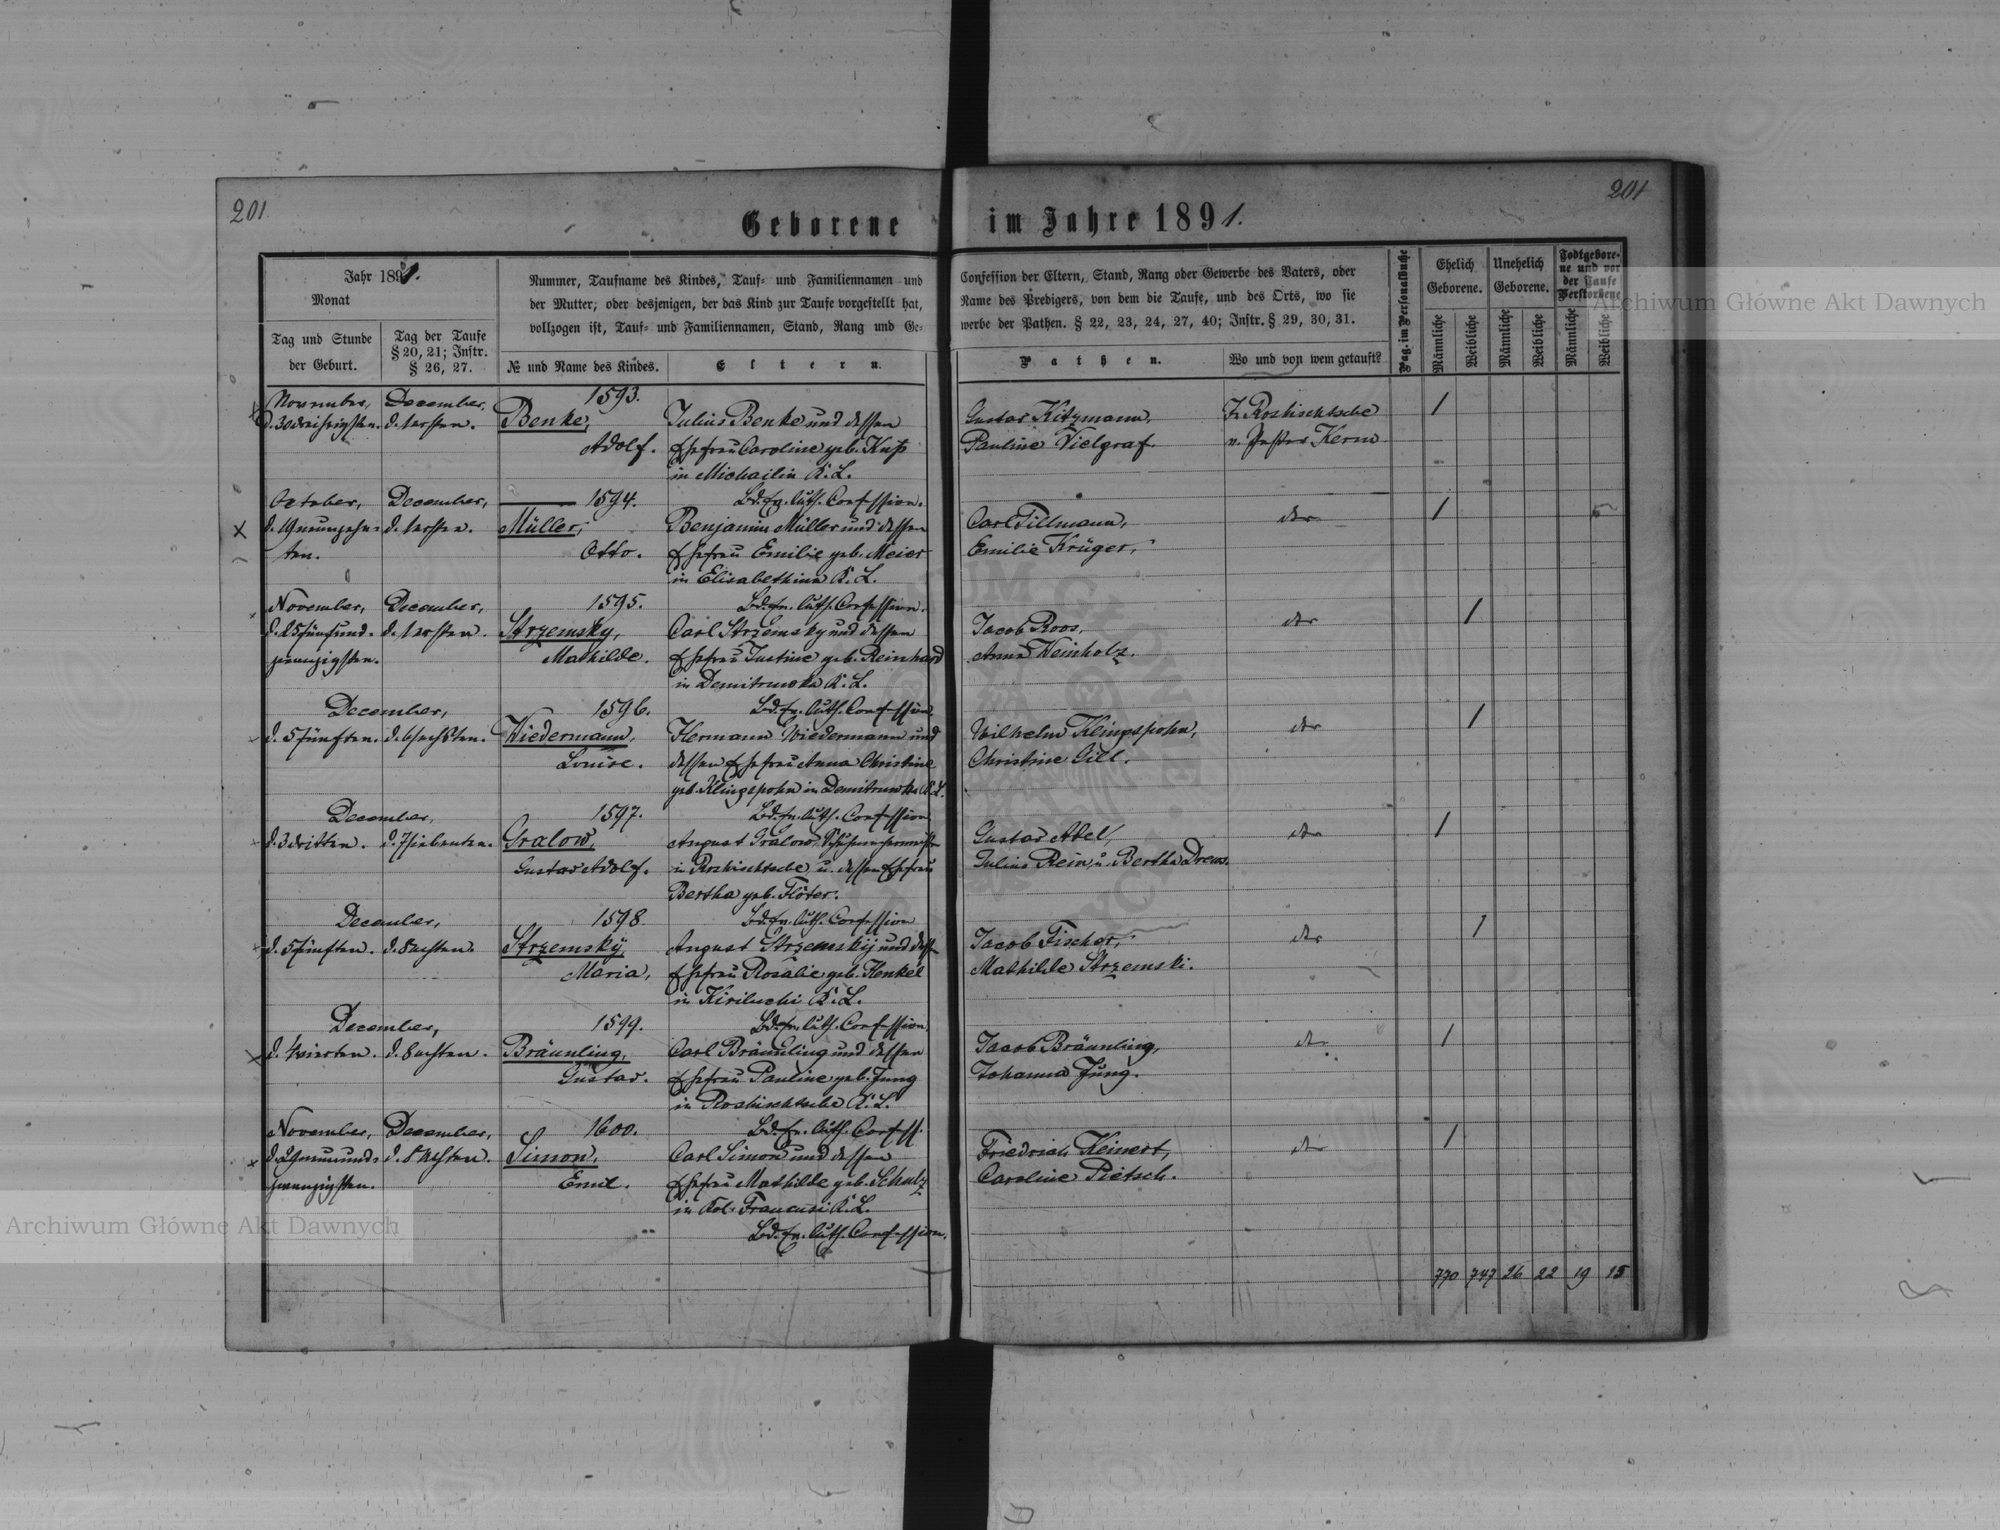 201.
201
Geborene im Jahre 1891.
Jahr 1891.
Monat
Tag und Stunde
der Geburt.
Tag der Taufe
§ 20, 21; Instr.
§ 26, 27.
Nummer, Taufname des Kindes, Tauf- und Familiennamen und
der Mutter; oder desjenigen, der das Kind zur Taufe vorgestellt hat,
vollzogen ist, Tauf- und Familiennamen, Stand, Rang und Ge-
№ und Name des Kindes.
Eltern.
Confession der Eltern, Stand, Rang oder Gewerbe des Vaters, oder
Name des Predigers, von dem die Taufe, und des Orts, wo sie
werbe der Pathen. § 22, 23, 24, 27, 40; Instr. § 29, 30, 31.
Pathen.
Wo und von wem getauft?
Pag. im Personalbuche
Ehelich
Geborene.
Unehelich
Geborene.
Todtgebore-
ne und vor
der Taufe
Verstorbene
Männliche
Weibliche
Männliche
Weibliche
Männliche
Weibliche
November,
d. 30 dreißigsten.
December,
d. 1 ersten.
1593.
Benke,
Adolf.
Julius Benke und dessen
Ehefrau Caroline geb. Kuß
in Michailin K. L.
Bd. Ev. Luth. Confession.
Gustav Kitzmann,
Pauline Vielgraf.
Z. Roshischtsche
v. Pastor Kerm
1
October,
d. 19 neunzehn-
ten.
December,
d. 1 ersten.
1594.
Müller,
Otto.
Benjamin Müller und dessen
Ehefrau Emilie geb. Meier
in Elisabethin K. L.
Bd. Ev. Luth. Confession.
Carl Tillmann,
Emilie Krüger,
dto
1
November,
d. 25 fünfund-
zwanzigsten.
December,
d. 1 ersten.
1595.
Strzemsky,
Mathilde.
Carl Strzemsky und dessen
Ehefrau Justine geb. Reinhard
in Demitrowka K. L.
Bd. Ev. Luth. Confession.
Jacob Roos,
Anna Weinholz.
dto
1
December,
d. 5 fünften. d. 6 sechsten.
1596.
Wiedermann,
Louise.
Hermann Wiedermann und
dessen Ehefrau Anna Christine
geb. Klingspohn in Demitrowka K. L.
Bd. Ev. Luth. Confession
Wilhelm Klingspohn,
Christine Gill.
dto
1
December,
d. 3 dritten. d. 7 siebenten.
1597.
Gralow,
Gustav Adolf.
August Gralow,
in Roshischtsche u. dessen Ehefrau
Bertha geb. Flöter.
Bd. Ev. Luth. Confession
Gustav Abel,
Julius Rein, u. Bertha Drews.
dto
1
December,
d. 5 fünften. d. 8 achten.
1598
Strzemsky,
Maria,
August Strzemsky und dessen
Ehefrau Rosalie geb. Henkel
in Kiriluchi K. L.
Bd. Ev. Luth. Confession.
Jacob Fischer,
Mathilde Strzemski.
dto
1
December,
d. 4 vierten. d. 8 achten.
1599.
Bräunling,
Gustav.
Carl Bräunling und dessen
Ehefrau Pauline geb. Jung
in Roshischtsche K. L.
Bd. Ev. Luth. Confess.
Jacob Bräunling,
Johanna Jung.
dto
1
November,
d. 29 neunund-
zwanzigsten.
December,
d. 8 achten.
1600.
Simon,
Emil.
Carl Simon und dessen
Ehefrau Mathilde geb. Schulz
in Kol. Francusi K. L.
Bd. Ev. Luth. Confession.
Friedrich Keinert,
Caroline Pietsch.
dto
1
770 747 26 22 19 15
Archiwum Główne Akt Dawnych
Archiwum Główne Akt Dawnych